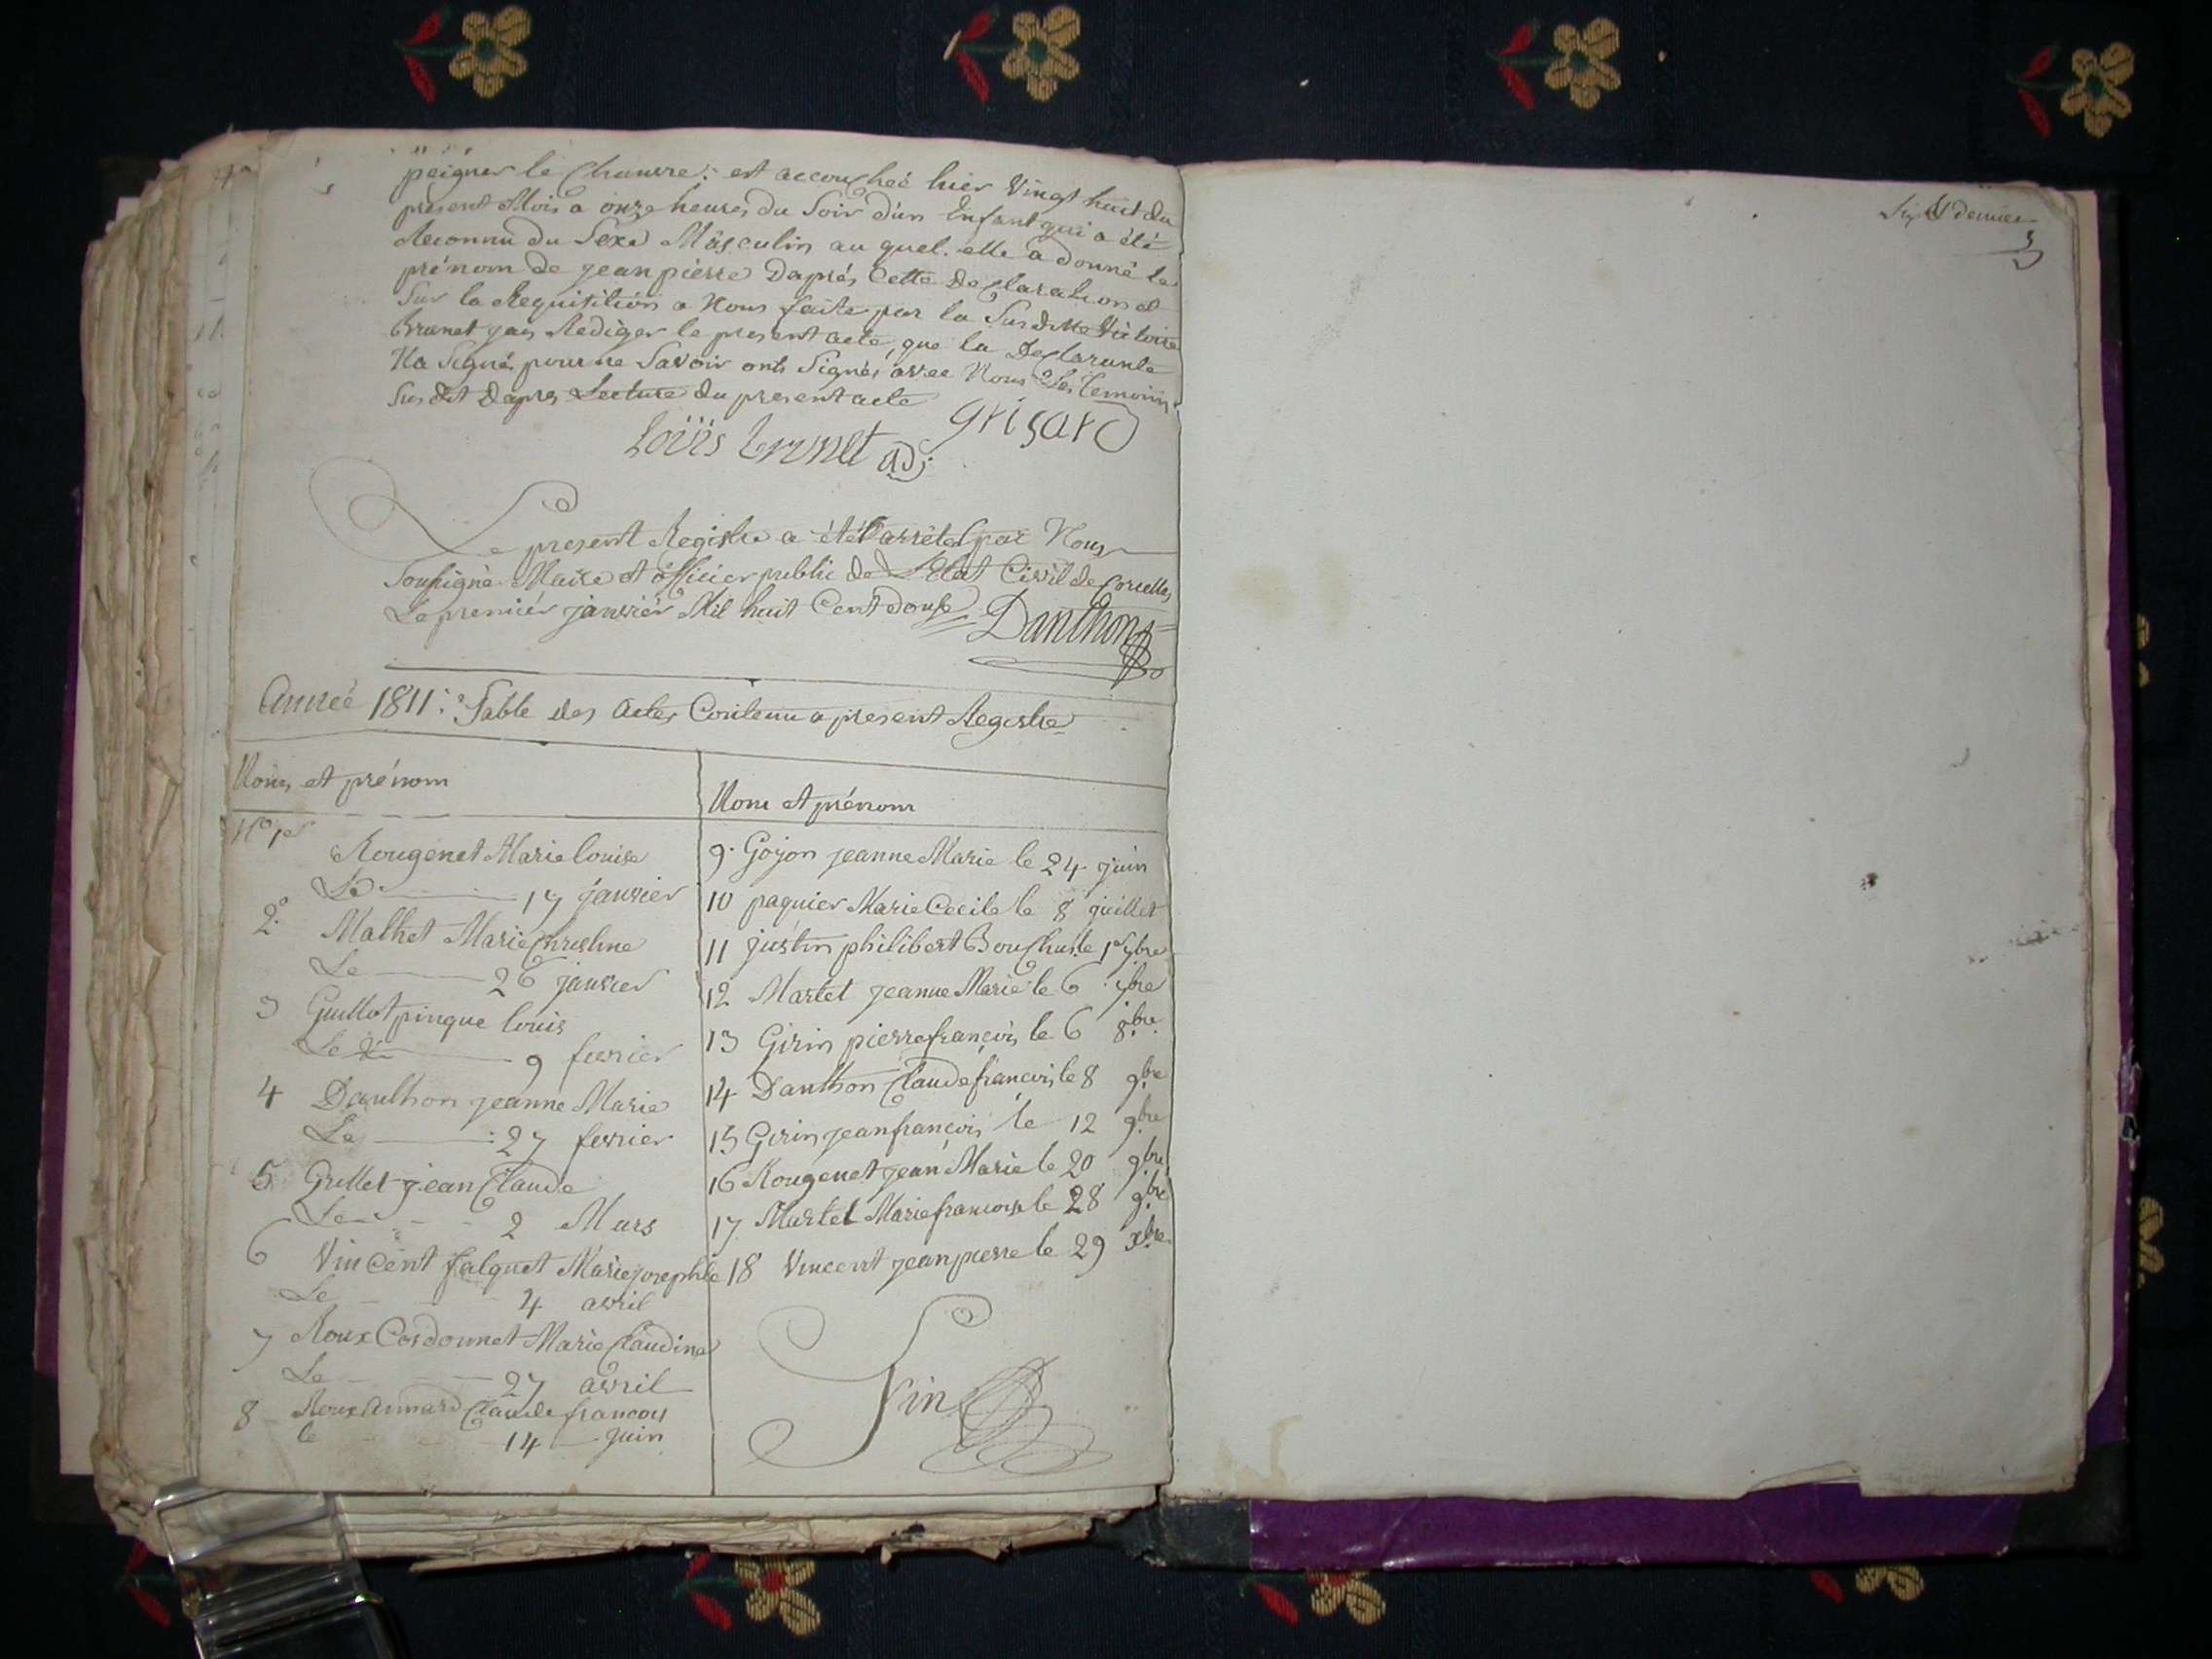 peigner le Chanvre; est accouchée hier Vingt huit du
present Mois a onze heures du Soir d'un Enfant qui a été
Reconnu du Séxe Masculin au quel elle a donné le
prénom de jean pierre Daprés Cette Declaration et
Sur la Requisition a Nous faite par la Susditte Victoire
Brunet jai Rediger le present acte, que la Declarante
Na Signé pour ne Savoir onts Signés avec Nous Les temoins
Susdit Dapres Lecture du present acte
grisard
Loüis brunet adj
Le present Registre a été arrété par Nous
Soussigné Maire et officier public de L'Etat Civil de Corcelles
Le premiér janvier Mil huit Cent douse
Danthon
Année 1811: Table des actes Contenu a present Registre
Noms et prénom
N° 1er
Rougenet Marie louise
Le 17 janvier
2° Mathet Marie
Le 26 janvier
3 Guillot pingue louis
Le 9 fevrier
4 Danthon jeanne Marie
Le 27 fevrier
5 Grillet jean Claude
Le 2 Mars
6 Vincent falquet Marie josephte
Le 4 avril
7 Roux Cordonnet Marie Claudine
Le 27 avril
8 Roux Claude francois
le 14 juin
Nom et prénom
9. Goyon jeanne Marie le 24 juin
10 paquier Marie Cecile le 8 juillet
11 justin philibert Bouchu le 1er 7bre
12 Martet jeanne Marie le 6 7bre
13 Girin pierre françois le 6 8bre
14 Danthon Claude françois le 8 9bre
15 Girin jean françois le 12 9bre
16 Rougenet jean Marie le 20 9bre
17 Martet Marie francoise le 28 9bre
18 Vincent jean pierre le 29 xbre
Fin
Six & dernier